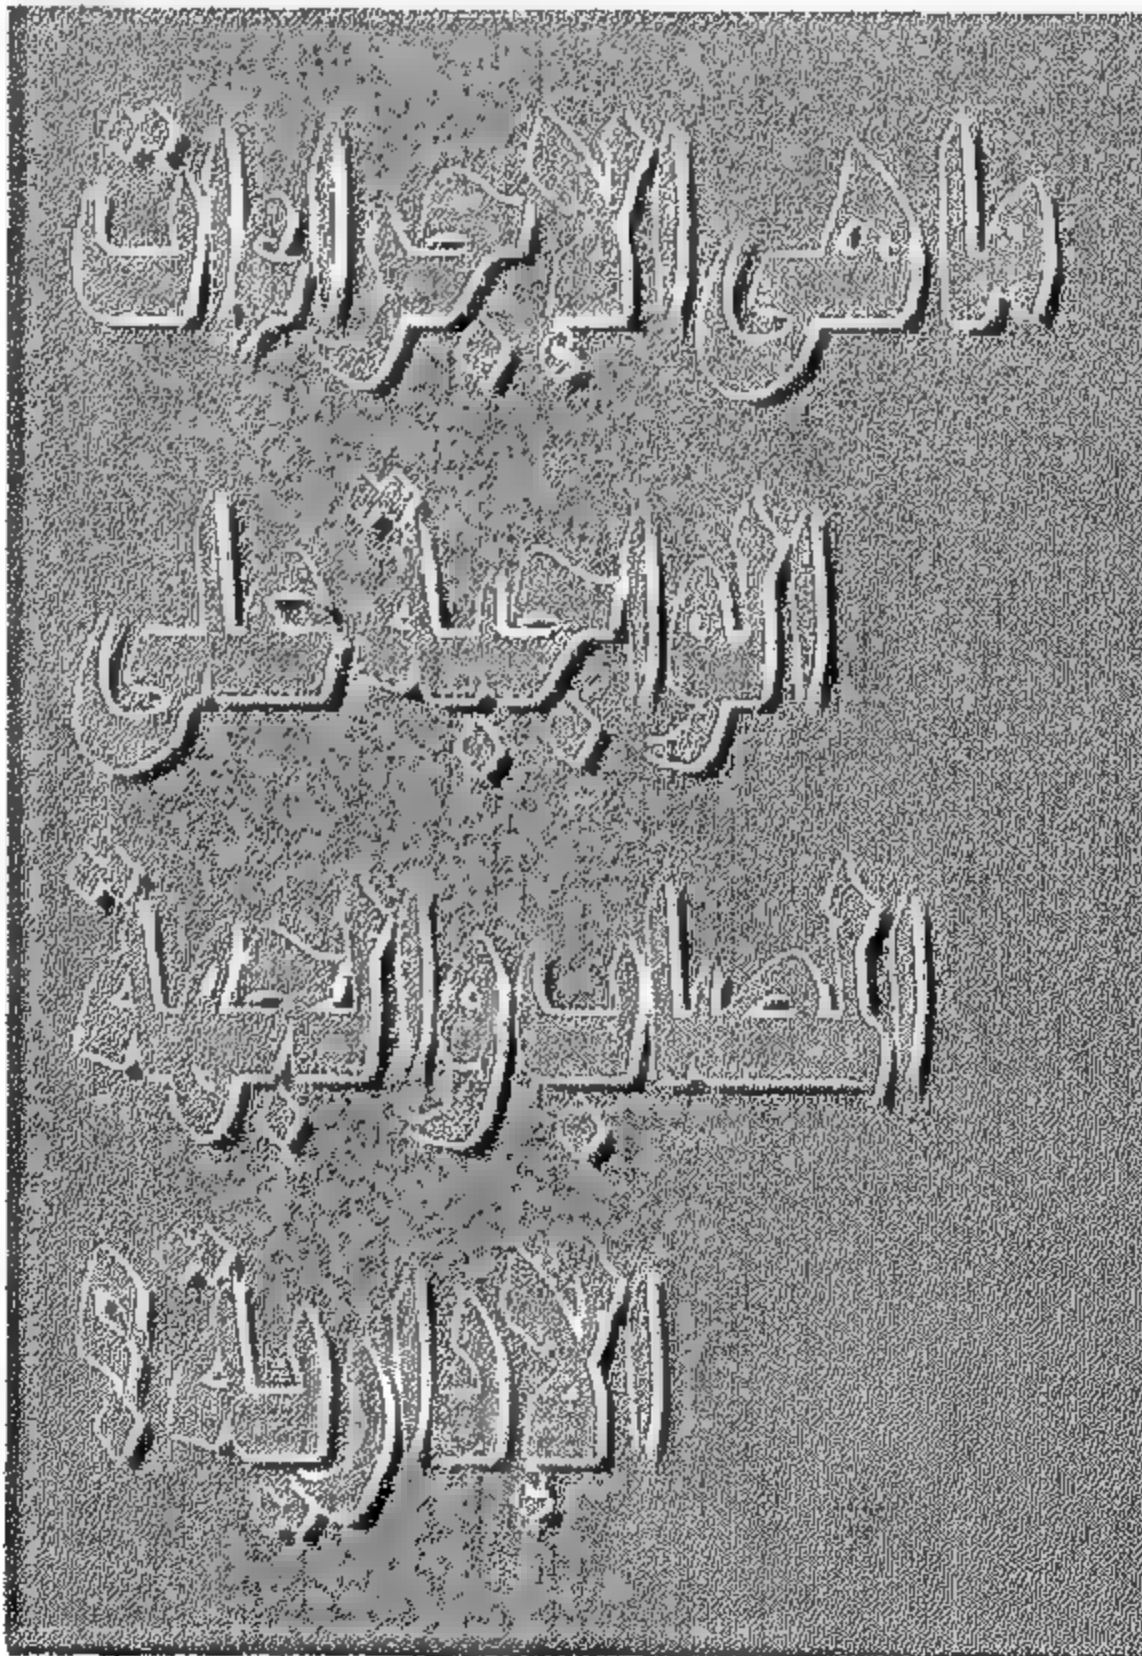 ماهي الإجراءات
الواجبة على
المصاب والجهة
الإدارية؟